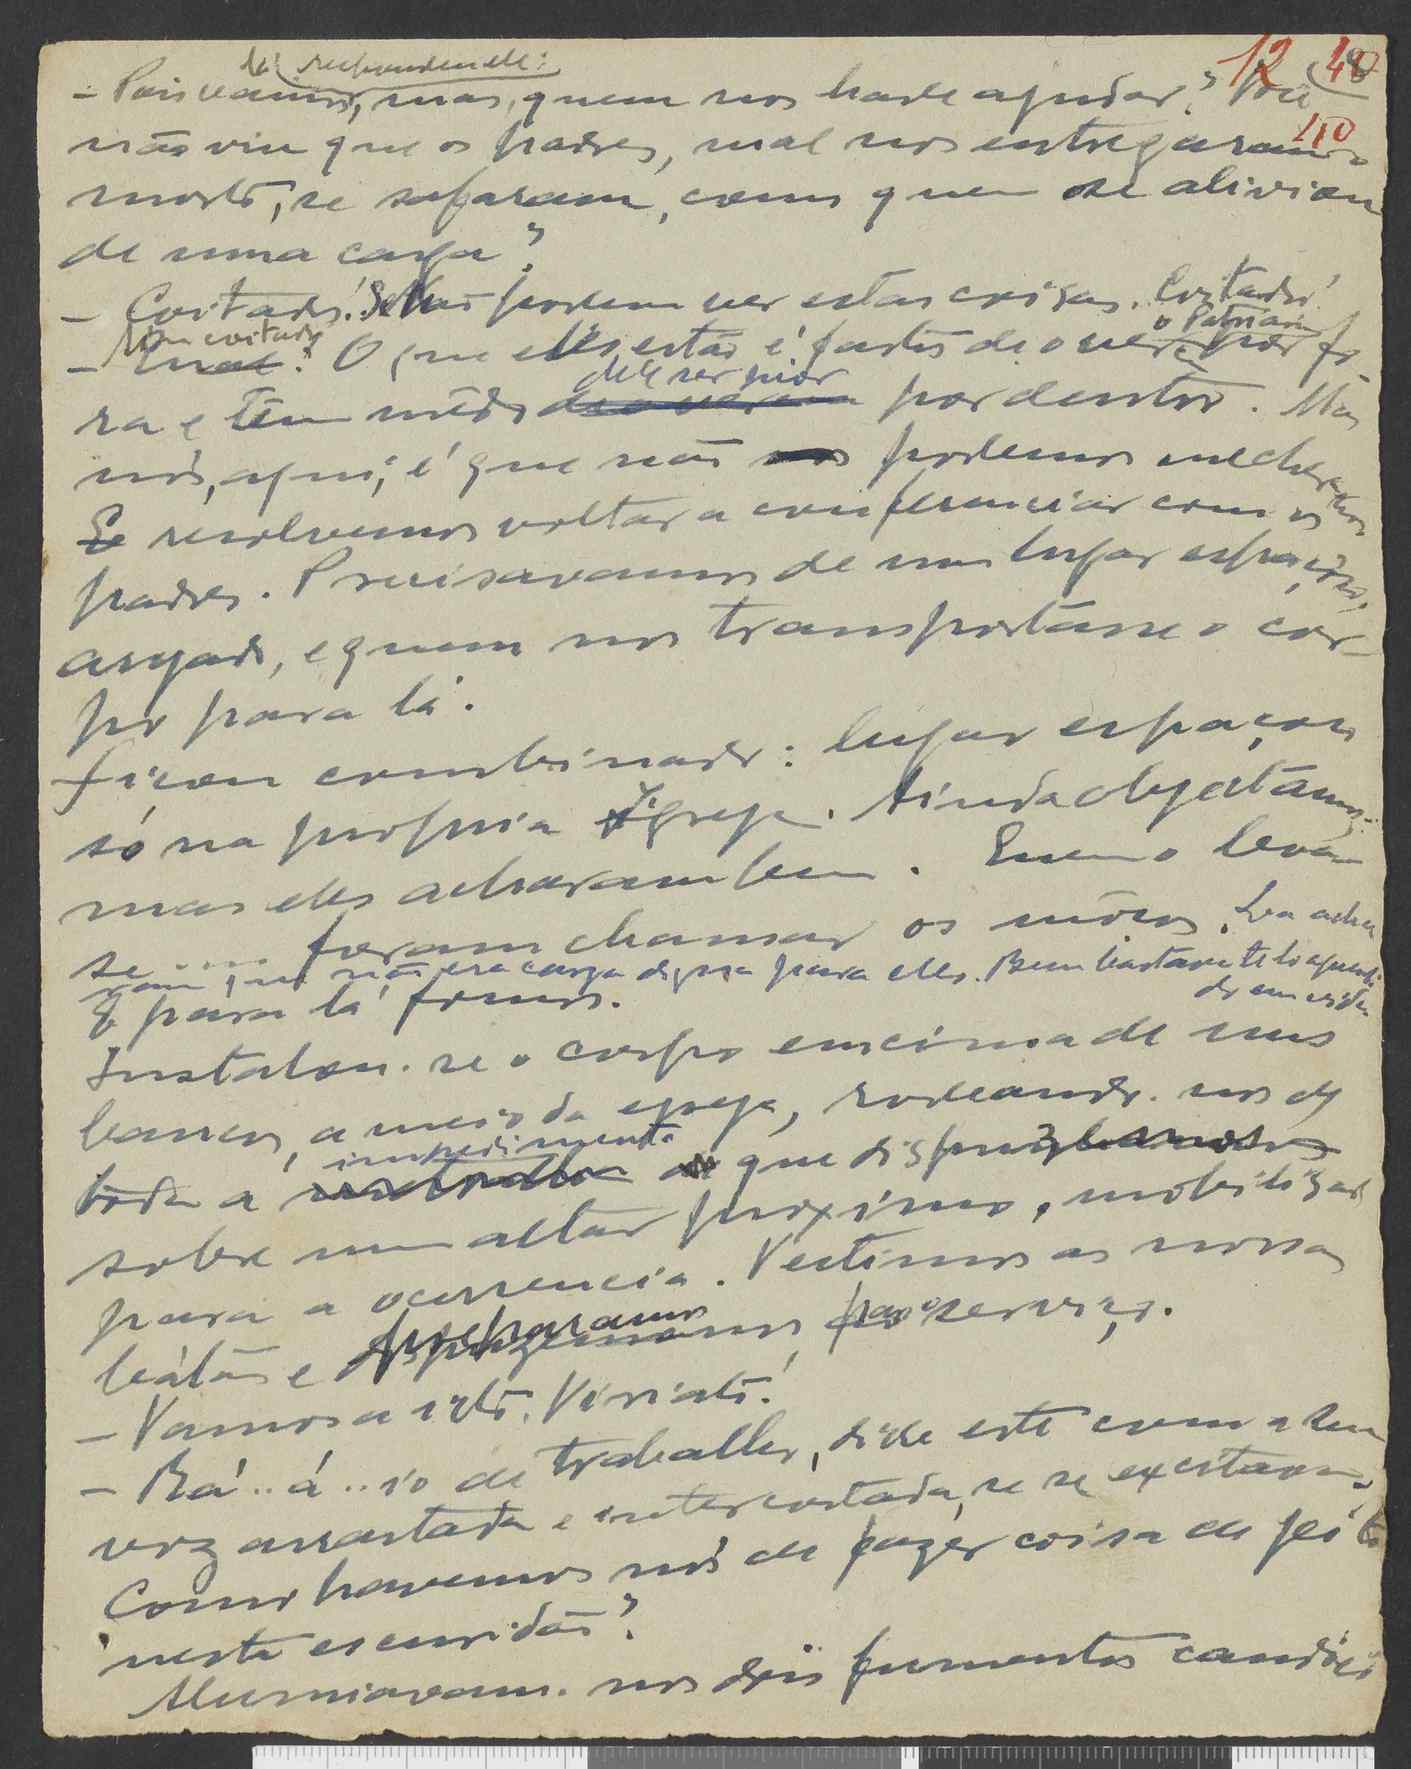 respondeu ele:
12 48
40
- Pois vamos, mas, quem nos hade ajudar? Você
não viu que os padres, mal nos entregaram o
morto, se safaram, como quem se aliviou
de uma carga?
- Coitados! Se não podem ver estas coisas. Coitados!
- Mau coitados? O que elles estão é fartos de o ver o Patriarca por fó-
ra e têm mêdo dele ser pior por dentro. Mas
nós, aqui, é que não podemos mecher-nos
E resolvemos voltar a conferenciar com os
padres. Precisavamos de um lugar espaçoso,
asyado, e quem nos transportásse o cor-
po para lá.
Ficou combinado: lugar espaçoso
só na propria Igreja. Ainda objectámos:
mas elles acharam bem. Quem o leva-
se .... foram chamar os môços. Lá acha
ram que não era carga digna para elles. Bem bastava tê-lo aguenta
do em vida
E para lá fomos.
Instalou-se o corpo encima de uns
bancos, a meio da egreja, rodeando-nos de
toda a que dispuzemos
sobre um altar proximo, mobilizado
para a ocurrencia. Vestimos as nossas
batas e preparamo-nos para o serviço.
- Vamos a isto, Viriato!
- Rá..á..io de traballo, disse este com a sua
voz arrastada e intercortada, se se exaltava.
Como havemos nós de fazer coisa de geito
nesta escuridão?
Alumiavam-nos dois fumentos candieiros